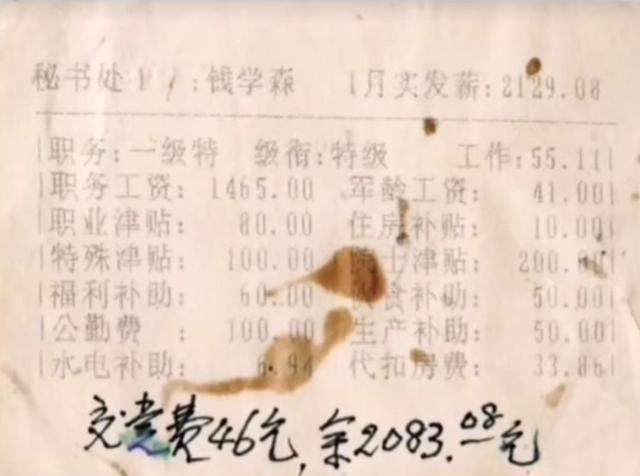 秘书处1 : 钱学森 1月实发薪:2129.08
职务:一级特 级衔:特级 工作:55.11
职务工资: 1465.00 军龄工资: 41.00
职业津贴: 80.00 住房补贴: 10.00
特殊津贴: 100.00 院士津贴: 200.00
福利补助: 60.00 伙食补助: 50.00
公勤费 : 100.00 生产补助: 50.00
水电补助: 6.94 代扣房费: 33.86
交党费46元,余2083.08元